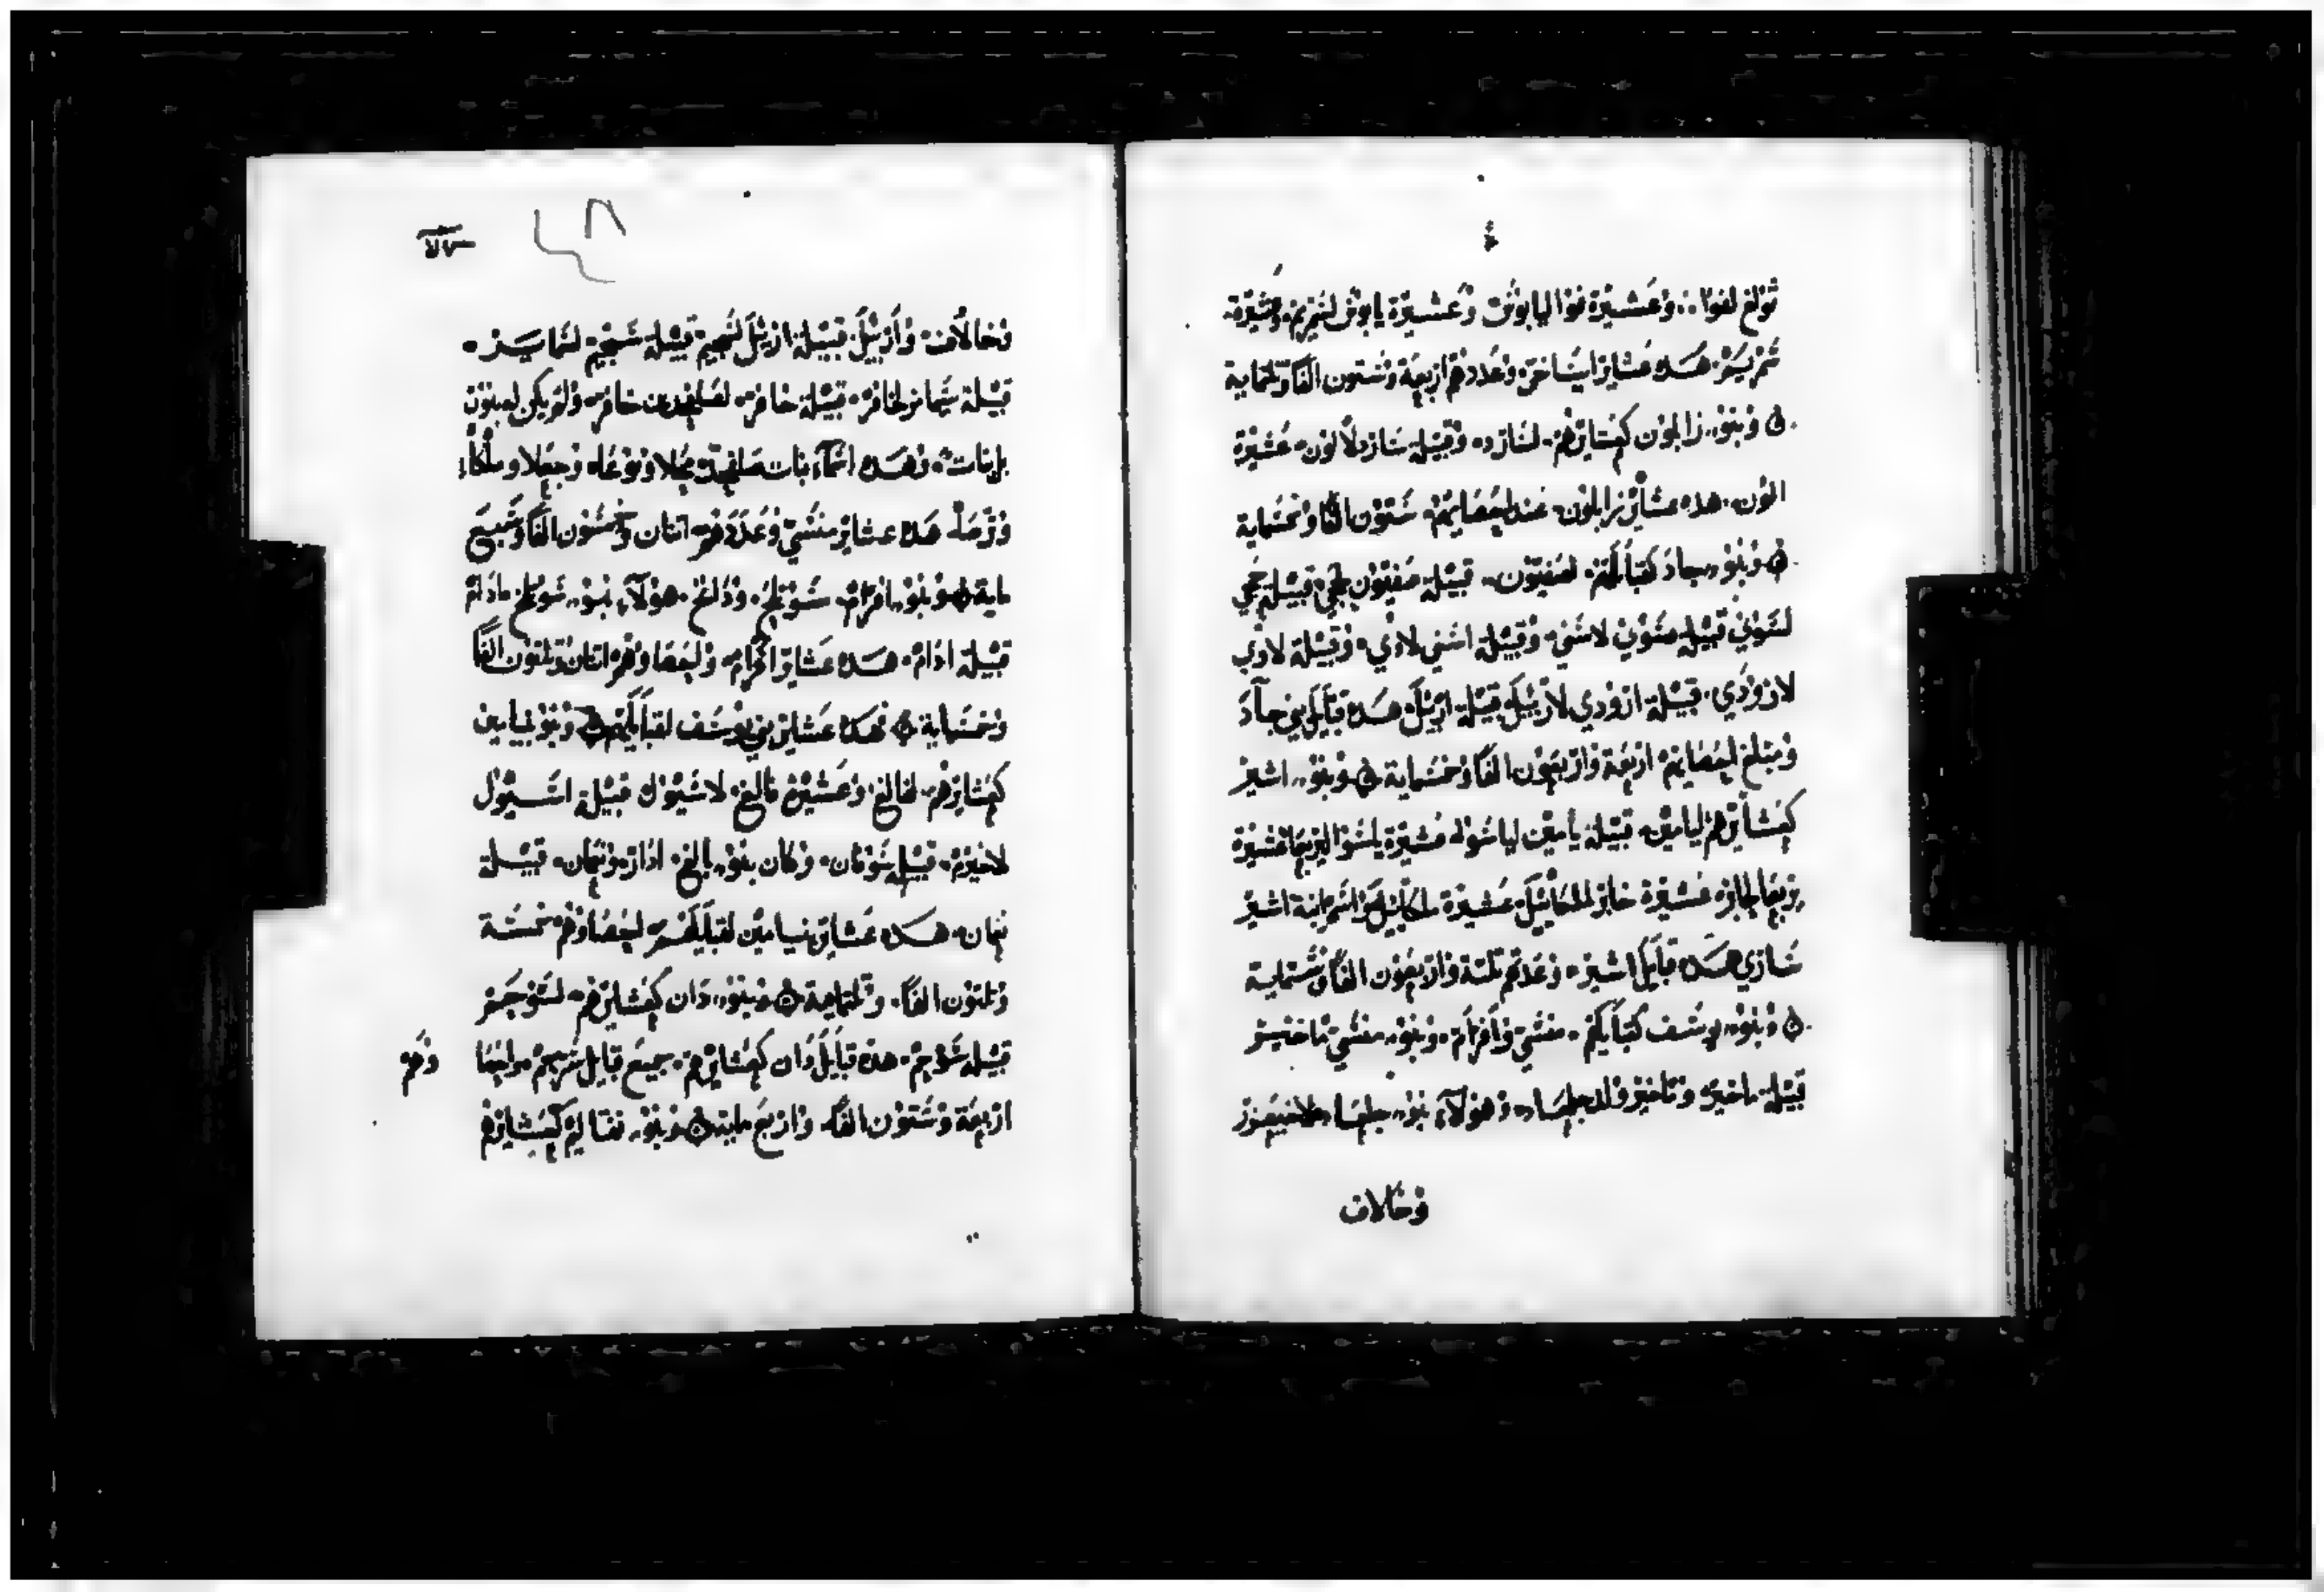 تولع لفوا ؞ وعشيرة فوا اليابوش وعشيرة يابوش لشمريم وعشيرة
شمريم هده عشاير ايساخر وعددهم اربعة وستون الفا وتلتماية
وبنو زابلون كعشايرهم لسارد وقبيلة سارد لالون عشيرة
الون هده عشاير زابلون عند احصايهم ستون الفا وخمسماية
وبنو جاد كقبايلهم لصفيون قبيلة صفيون لحجي قبيلة حجي
لسوني قبيلة سوني لاسني وقبيلة اسني لادي وقبيلة لادي
لارودي قبيلة ارودي لارييل قبيلة ارييل هده قبايل بني جاد
ومبلغ احصايهم اربعة واربعون الفا وخمسماية وبنو اشير
كعشايرهم ليامين قبيلة يامين لياشوا عشيرة يلشوا لبريعا عشيرة
بريعا لحابر عشيرة حابر لملخاييل عشيرة ملكاييل اسم ابنة اشير
سارح هده قبايل اشير وعدتهم تلتة واربعون الفا وستماية
وبنو يوسف كقبايلهم منسي وافرام وبنو منسي ماخير
قبيلة ماخير وماخير ولد جلعاد وهولاء بنو جلعاد لاحيعزر
وخالاف
وخالاف وارييل قبيلة ارييل لشجيم قبيلة شجيم لشمايدز
قبيلة شماز لحافر قبيلة حافر لصلفحد بن حافر ولم يكن له بنون
بل بنات وهده اسماء بنات صلفحد محلا ونوعا وحجلا وملكا
وترصا هده عشاير منسي وعددهم اتنان وخمسون الفا وسبع
ماية وبنو افرام شوتلح ودلخ هولاء بنو شوتلح لادام
قبيلة ادام هده عشاير افرام واحصاوهم اتنان وتلتون الفا
وخمسماية فهده عشاير بني يوسف لقبايلهم وبنو بنيامين
كعشايرهم لخالع وعشيرة بالع لاشبول قبيلة اشبول
لاخيرم قبيلة شوفان وكان بنو بالع ادار ونعمان قبيلة
نعمان هده عشاير بنيامين لقبايلهم احصاوهم خمسة
وتلتون الفا وتلتماية وبنو دان كعشايرهم لشوحم
قبيلة شوحم هده قبايل دان كعشايرهم جميع قبايل شوحم مواحصا
وهم
اربعة وستون الفا واربع ماية وبنو نفتاليم كعشايرهم